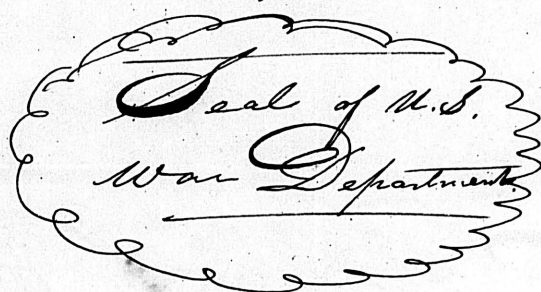 Seal of U.S.
War Department.